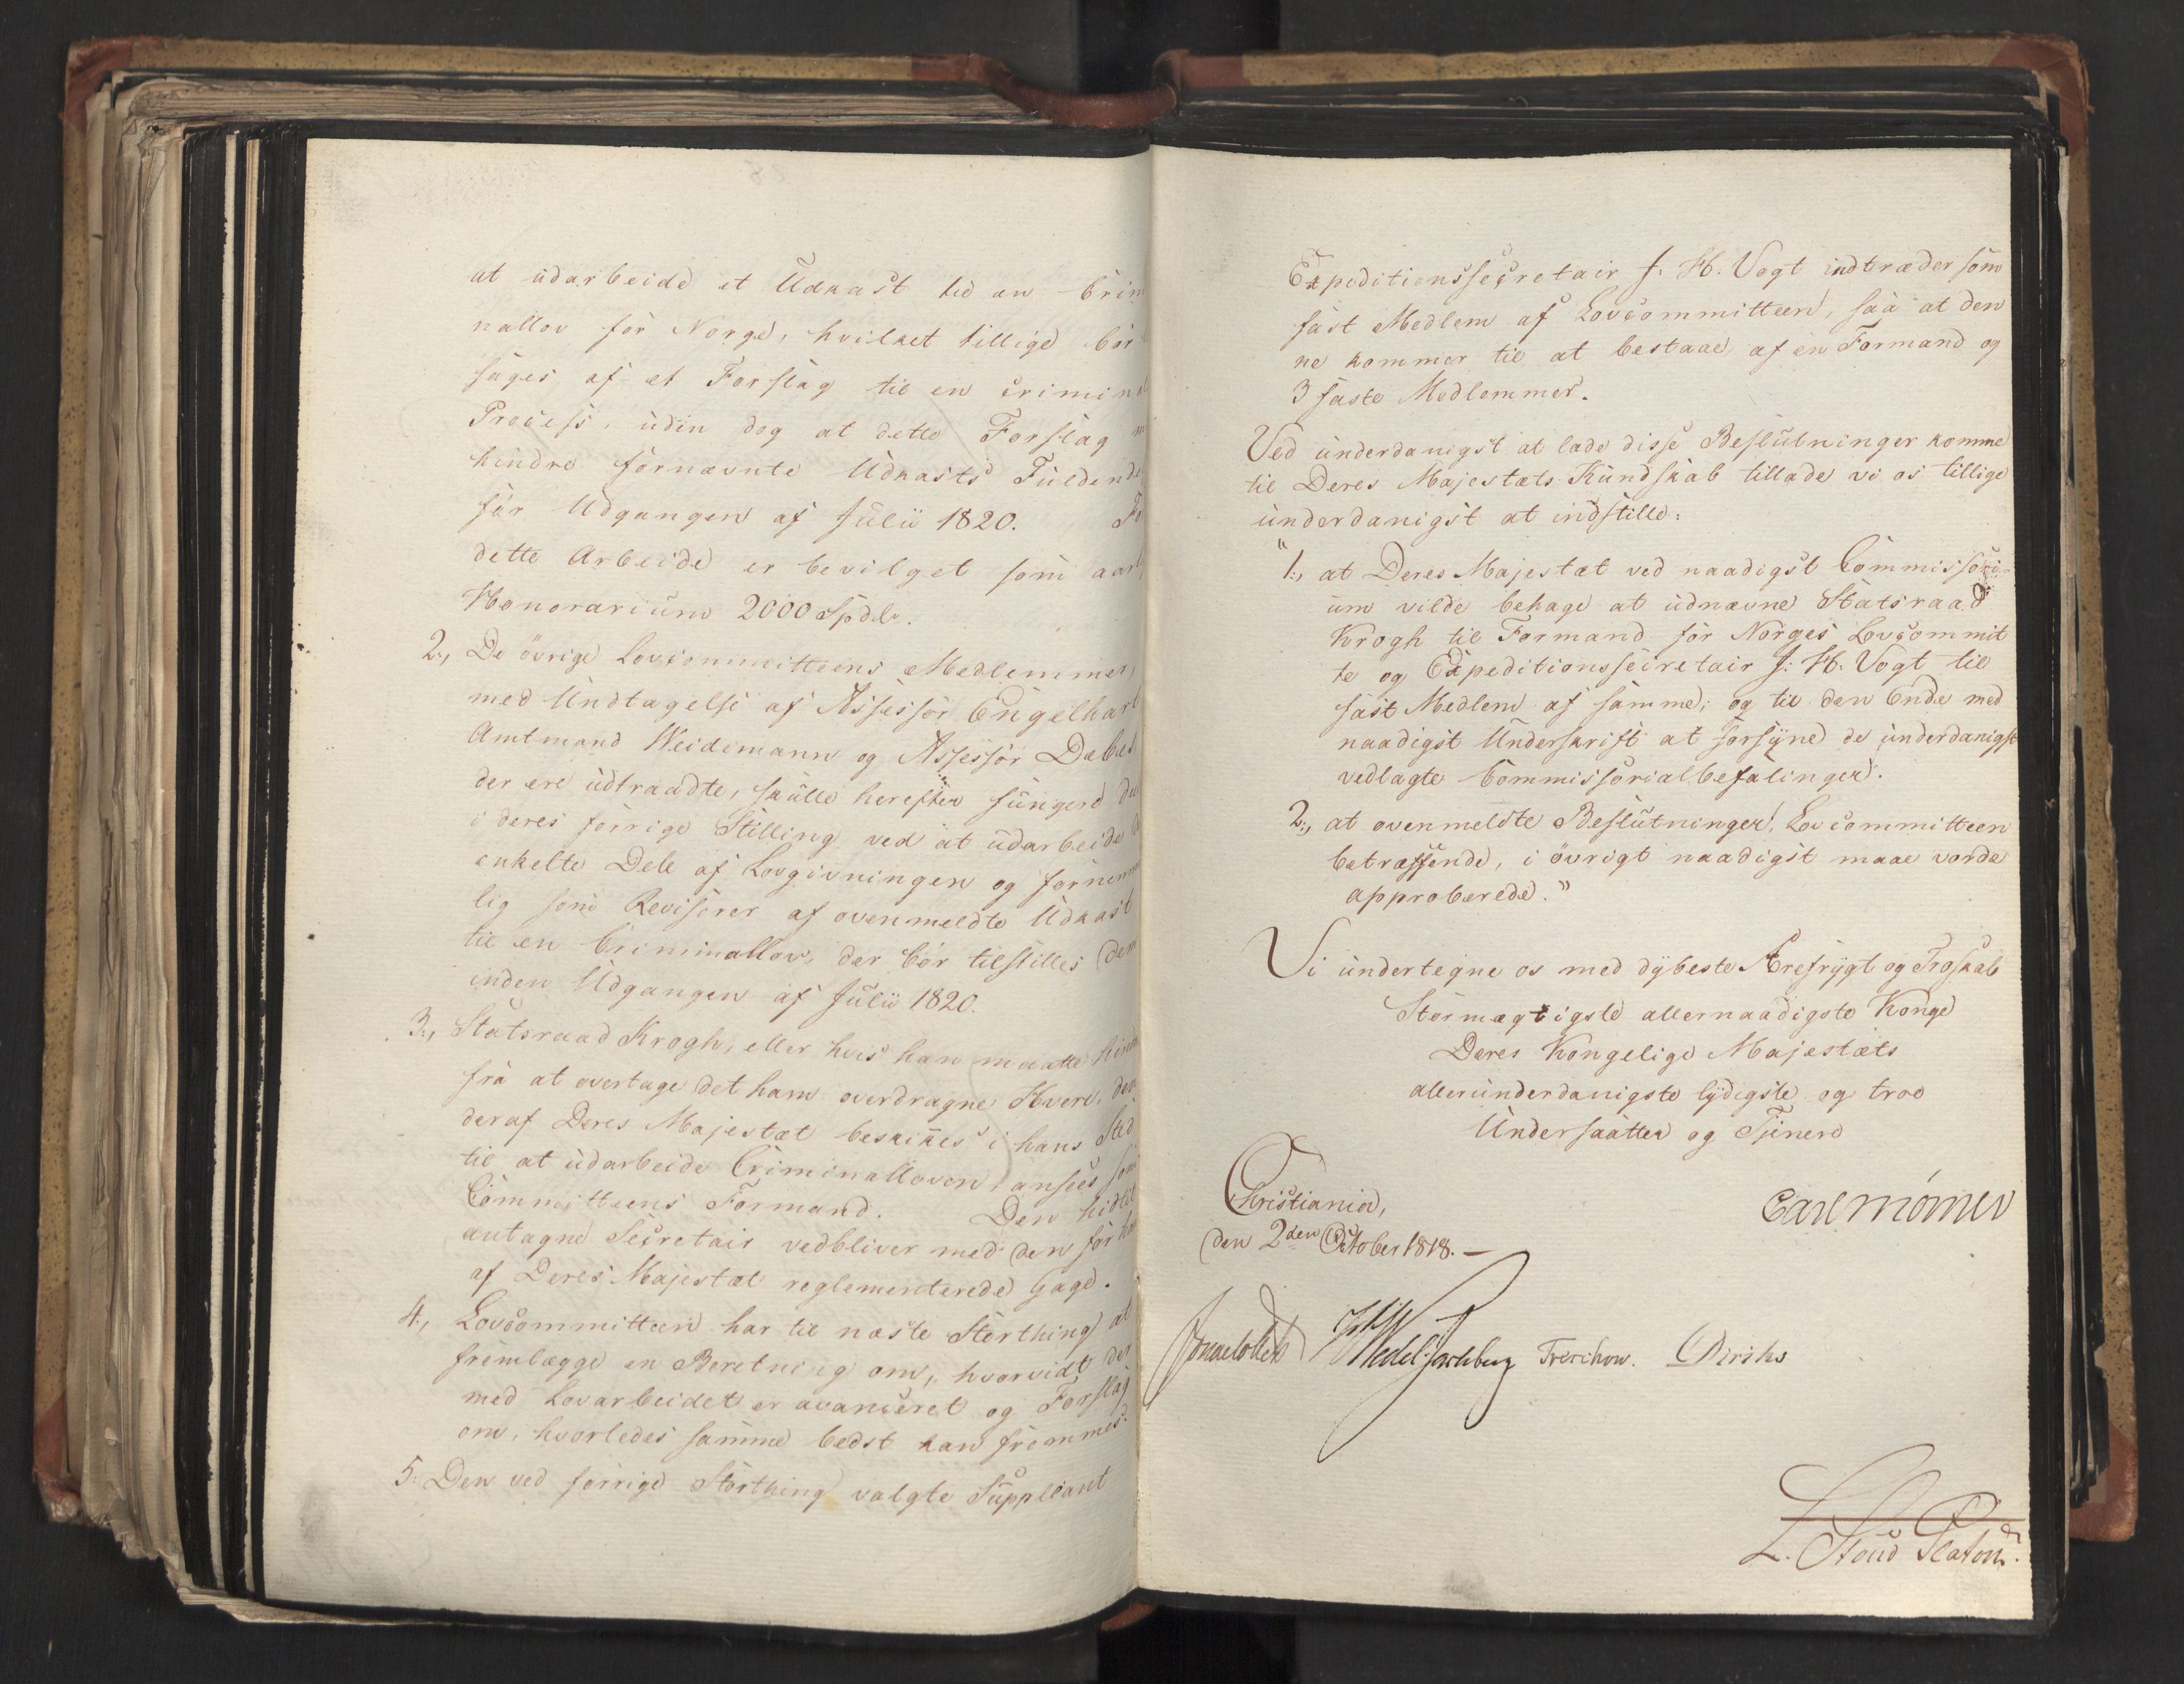 at udarbeide et Udkast til en Crim
nallov for Norge, hvilket tillige bør
føges af et Forslag til en Crimin
Process, uden dog at dette Forslag
hindre fornævnte Udkasts Fuldend
før Udgangen af Julii 1820. Fo
dette Arbeide er bevilget som aarl
Honorarium 2000 Spdlr.
2., De övrige Lovcommitteens Medlemmer,
med Undtagelse af Assessor Engelhart
Amtmand Weidemann og Assessor Debes
der ere udtraadte, skulle herefter fungere
i deres forrige Stilling ved at udarbeide
enkelte Dele af Lovgivningen og fornem
lig som Revisorer af ovenmeldte Udkast
til en Criminallov, der bör tilstilles dem
inden Udgangen af Julii 1820.
3., Statsraad Krogh, eller hvis han maatte hind
fra at overtage det ham overdragne Hverv, den
deraf Deres Majestæt beskikkes i hans Sted
til at udarbeide Criminalloven, ansees som
Committeens Formand. Den hidtil
antagne Secretair vedbliver med den for
af Deres Majestæt reglementerede Gage.
4., Lovcommitteen har til næste Storthing at
fremlægge en Beretning om, hvorvidt der
med Lovarbeidet er avanceret og Forslag
om, hvorledes samme bedst kan fremmes.
5. Den ved forrige Storthing valgte Suppleant
Expeditionssecretair J: H. Vogt indtræder som
fast Medlem af Lovcommitteen, saa at den
ne kommer til at bestaae af en Formand og
3 faste Medlemmer.
Ved underdanigst at lade disse Beslutninger komme
til Deres Majestæts Kundskab tillade vi os tillige
underdanigst at indstille:
"1., at Deres Majestæt ved naadigst Commissori-
um vilde behage at udnævne Statsraad
Krogh til Formand for Norges Lovcommit
te og Expeditionssecretair J: H. Vogt til
fast Medlem af samme; og til den Ende med
naadigst Underskrift at forsyne de underdanigst
vedlagte Commissorialbefalinger.
2., at ovenmeldte Beslutninger, Lovcommitteen
betræffende, i övrigt naadigst maae vorde
approberede."
Vi undertegne os med dybeste Ærefrygt og Troskab
Stormægtigste allernaadigste Konge
Deres Kongelige Majestæts
allerunderdanigste lydigste og troe
Undersaatter og Tjenere
Christiania,
den 2den October 1818. —
Carl Mörner
Sommerhielm Wedel Jarlsberg Treschow. Diriks
L. Stoud Platou.